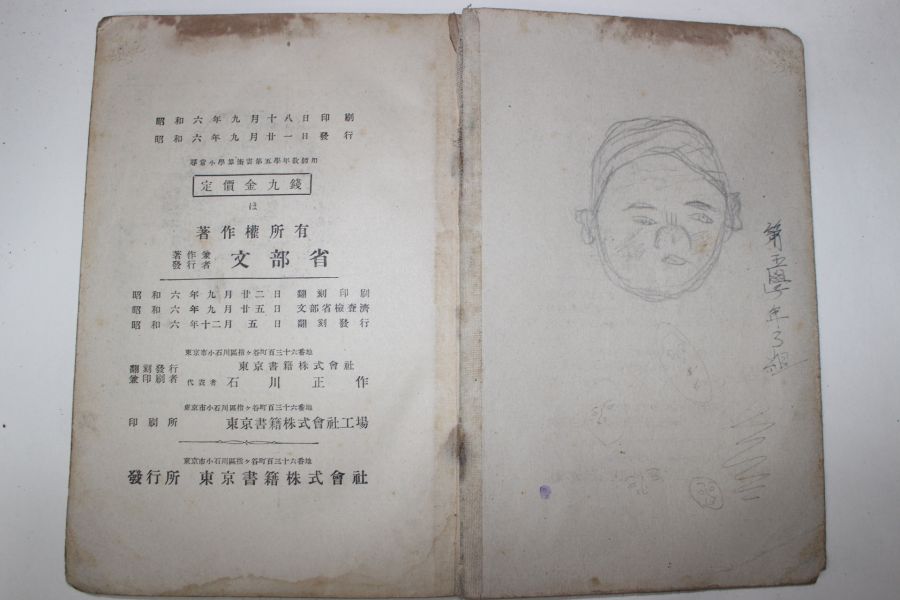 昭和六年九月十八日印刷
昭和六年九月廿一日發行
尋常小學算術書第五學年教師用
定價金九錢
は
著作權所有
著作兼
發行者 文部省
昭和六年九月廿二日 翻刻印刷
昭和六年九月廿五日 文部省檢查濟
昭和六年十二月五日 翻刻發行
東京市小石川區指ヶ谷町百三十六番地
翻刻發行
兼印刷者 東京書籍株式會社
代表者 石川正作
東京市小石川區指ヶ谷町百三十六番地
印刷所 東京書籍株式會社工場
東京市小石川區指ヶ谷町百三十六番地
發行所 東京書籍株式會社
第五學年